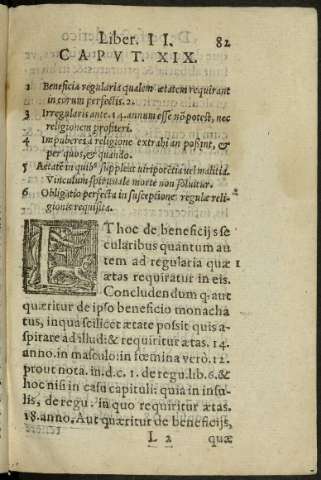 Liber. II. 82
CAPVT. XIX.
1 Beneficia regularia qualem ætatem requirant
in eorum perfectis. 2.
3 Irregularis ante. 14. annum esse nõ potest, nec
religionem profiteri.
4 Impuberes à religione extrahi an possint, &
per quos, & quando.
5 Aetatē in quib⁹ suppleat uiripotētia uel malitia.
Vinculum spirituale morte non soluitur.
6 Obligatio perfecta in susceptione regulæ reli-
gionis requisita.
ET hoc de beneficijs se
cularibus quantum au
tem ad regularia quæ 1
ætas requiratur in eis.
Concludendum q. aut
quæritur de ipso beneficio monacha
tus, in qua scilicet ætate possit quis a-
spirare ad illud: & requiritur ætas. 14.
anno. in masculo: in fœmina verò. 12.
prout nota. in. d.c. 1. de regu. lib. 6. &
hoc nisi in casu capituli: quia in insu-
lis, de regu. in quo requiritur ætas.
18. anno. Aut quæritur de beneficijs,
L 2 quæ